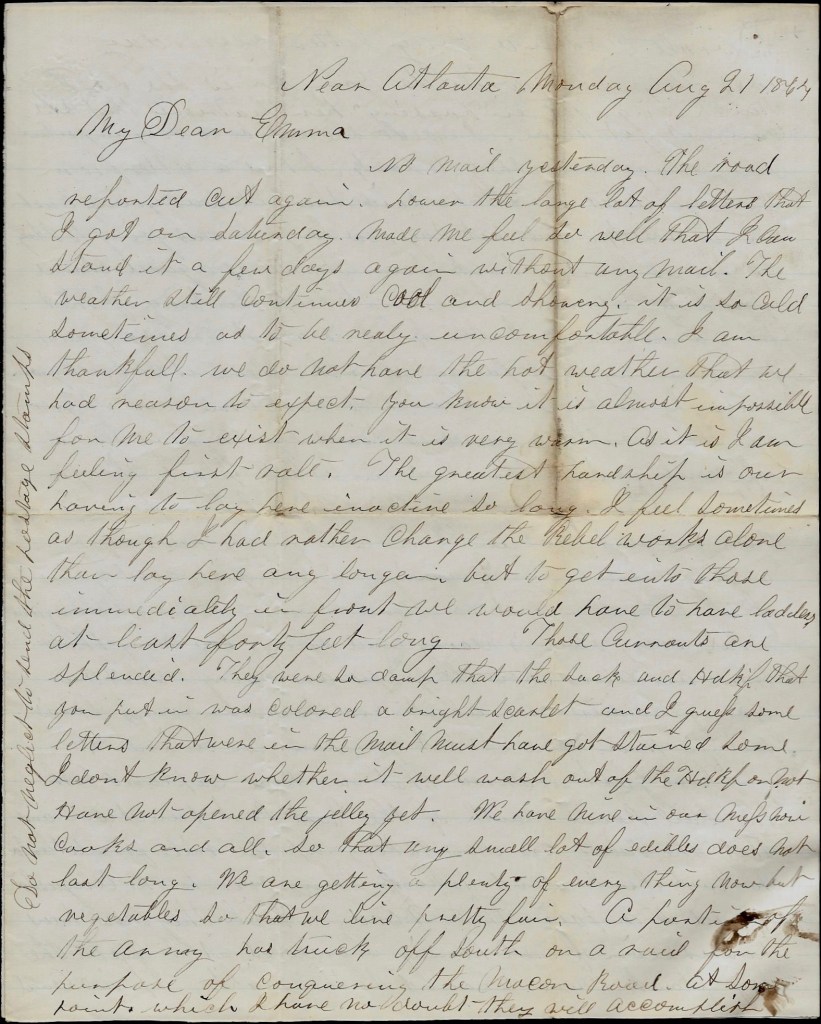 Near Atlanta Monday Aug 21 1864
My Dear Emma
No mail yesterday. The road
reported cut again. however the large lot of letters that
I got on Saturday. Made me feel so well that I can
stand it a few days again without any mail. The
weather still continues cool and showery. it is so cold
sometimes as to be nealy uncomfortable. I am
thankfull. we do not have the hot weather that we
had reason to expect. You know it is almost impossible
for me to exist when it is very warm. As it is I am
feeling first rate. The greatest hardship is our
having to lay here inactive so long. I feel sometimes
as though I had rather Charge the Rebel works alone
than lay here any longer. but to get into those
immediately in front we would have to have ladders
at least forty feet long. Those Currants are
splendid. They were so damp that the sack and Hdkf that
you put in was colored a bright scarlet and I guess some
letters that were in the mail must have got stained some.
I dont know whether it well wash out of the Hdkf or not
Have not opened the jelley yet. We have nine in our mess now
Cooks and all. so that any small lot of edibles does not
last long. We are getting a plenty of every thing now but
vegetables so that we live pretty fair. A portion of
the army has struck off south on a raid for the
purpose of conquering the Macon Road. at some
point. which I have no doubt they will accomplish
Do not neglect to send the postage stamps